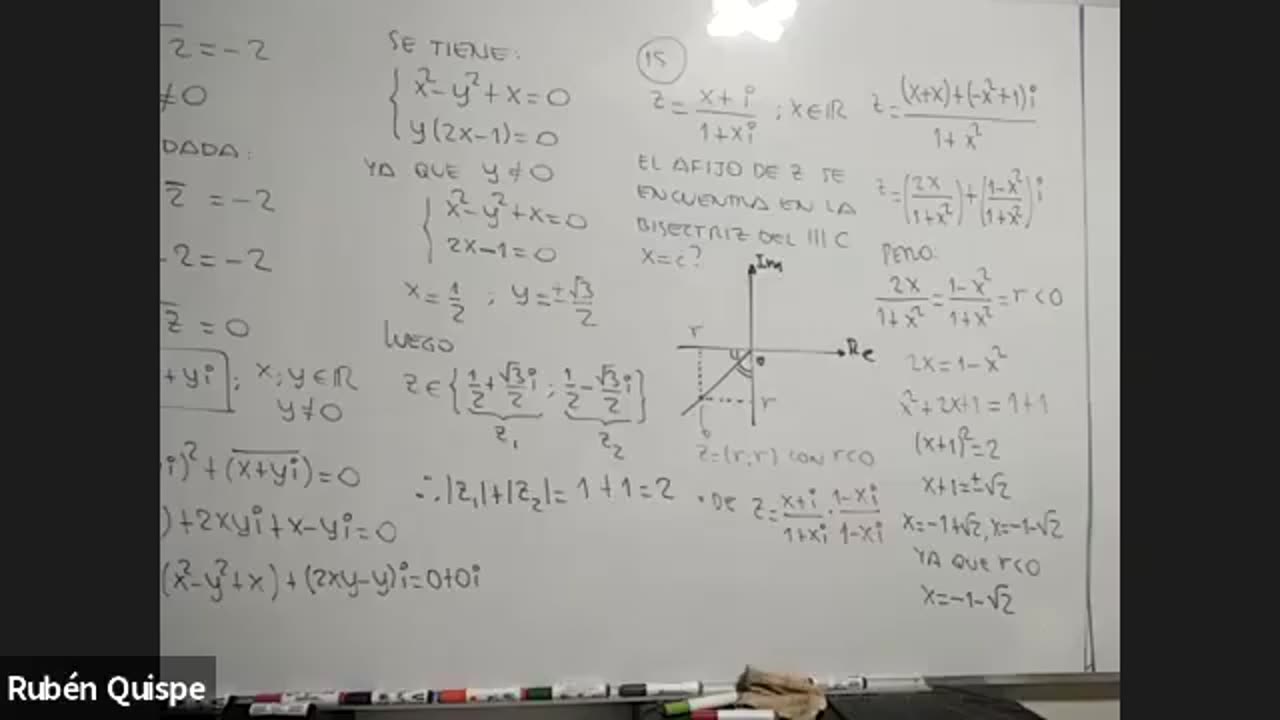 z̄ = -2
≠0
DADA:
z̄ = -2
-2 = -2
z̄ = 0
+yi ; x, y ∈ ℝ
y≠0
i)² + (\overline{x+yi}) = 0
) + 2xyi + x - yi = 0
(x² - y² + x) + (2xy - y)i = 0+0i
SE TIENE:
{ x² - y² + x = 0
y(2x-1) = 0
YA QUE y≠0
{ x² - y² + x = 0
2x-1 = 0
x = 1/2 ; y = ±√3/2
LUEGO
z ∈ { 1/2 + √3/2 i ; 1/2 - √3/2 i }
z₁ z₂
∴ |z₁| + |z₂| = 1 + 1 = 2
15
z = (x+i)/(1+xi) ; x ∈ ℝ
EL AFIJO DE z SE
ENCUENTRA EN LA
BISECTRIZ DEL III C
x = ¿?
Im
r
Re
r
z = (r, r) CON r<0
• DE z = (x+i)/(1+xi) · (1-xi)/(1-xi)
z = ((x+x) + (-x²+1)i)/(1+x²)
z = (2x/(1+x²)) + ((1-x²)/(1+x²))i
PERO:
2x/(1+x²) = (1-x²)/(1+x²) = r < 0
2x = 1-x²
x² + 2x + 1 = 1+1
(x+1)² = 2
x+1 = ±√2
x = -1+√2, x = -1-√2
YA QUE r<0
x = -1-√2
Rubén Quispe